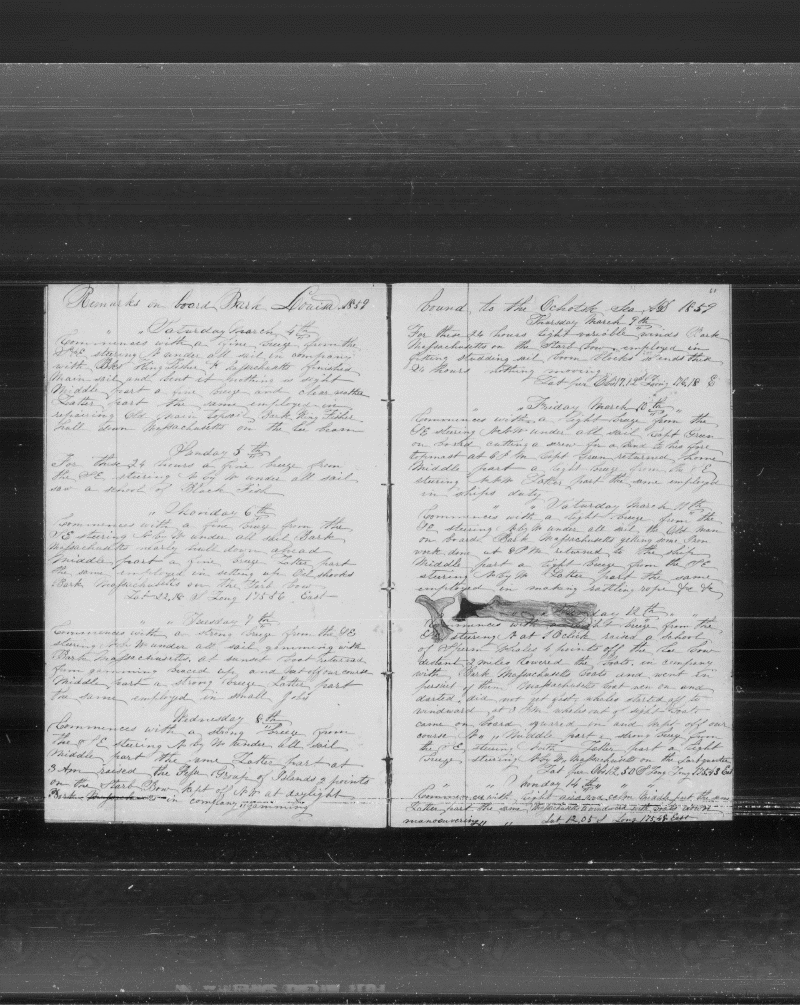 Remarks on board Bark Louisa 1859
" " Saturday March 4th
Commences with a fine breeze from the
SE steering N under all sail in company
with Bks King Fisher & Massachusetts finished
main sail and bent it nothing in sight
Middle part a fine breeze and clear weather
Latter part the same employed in
repairing Old main topsail Bark King Fisher
hull down Massachusetts on the lee beam
Sunday 5th
For these 24 hours a fine breeze from
the SE steering N by W under all sail
saw a school of Black Fish
" Monday 6th
Commences with a fine breeze from the
SE steering N by W under all sail Bark
Massachusetts nearly hull down ahead
Middle part a fine breeze Latter part
the same employed in setting up Oil shooks
Bark Massachusetts on the Starb Bow
Lat 22.16 S Long 175.56 East
" " Tuesday 7th
Commences with a strong breeze from the SE
steering N by W under all sail gamming with
Bark Massachusetts at sunset boat returned
from gamming braced up and out off our course
Middle part a strong breeze Latter part
the same employed in small jobs
Wednesday 8th
Commences with a strong breeze from
the SE steering N by W under all sail
Middle part the same Latter part at
3 Am raised the Group of Islands 2 points
on the Starb Bow kept of NW at daylight
Bark in company gamming
bound to the Ochotsk Sea 1859
Thursday March 9th
For these 24 hours light variable winds Bark
Massachusetts on the Starb Bow employed in
fitting studding sail boom blocks so ends this
24 hours nothing moving
Lat per Obs 17.12 S Long 176.18 E
" Friday March 10th
Commences with a light breeze from the
SE steering NNW under all sail Capt Green
on board cutting a screw for a band to his fore
topmast at 6 P M Capt Green returned home
Middle part a light breeze from the SE
steering NNW Latter part the same employed
in ships duty
" " Saturday March 11th
Commences with a light breeze from the
SE steering N by W under all sail the Old man
on board Bark Massachusetts getting some Iron
work done at 8 P M returned to the ship
Middle part a light breeze from the SE
steering N by W Latter part the same
employed in making rattling rope &c &c
day 12th "
Commences with a light breeze from the
steering N at 1 Oclk raised a School
of Sperm Whales 4 points off the Lee bow
distant 2 miles lowered the boats, in company
with Bark Massachusetts boats and went in
pursuit of them Massachusetts boat run on and
darted did not get fast whales started off to
windward at 3 P M whales out of sight boats
came on board squared in and kept off our
course Middle part a strong breeze from
the SE steering Latter part a light
breeze steering N by W Massachusetts on the Larb quarter
Lat per Obs 12.50 S Long 175.43 East
" Monday 14th "
Commences with light airs and calm Middle part the same
Latter part the same to windward with boats
manoeuvering Lat 12.05 S Long 175.58 East